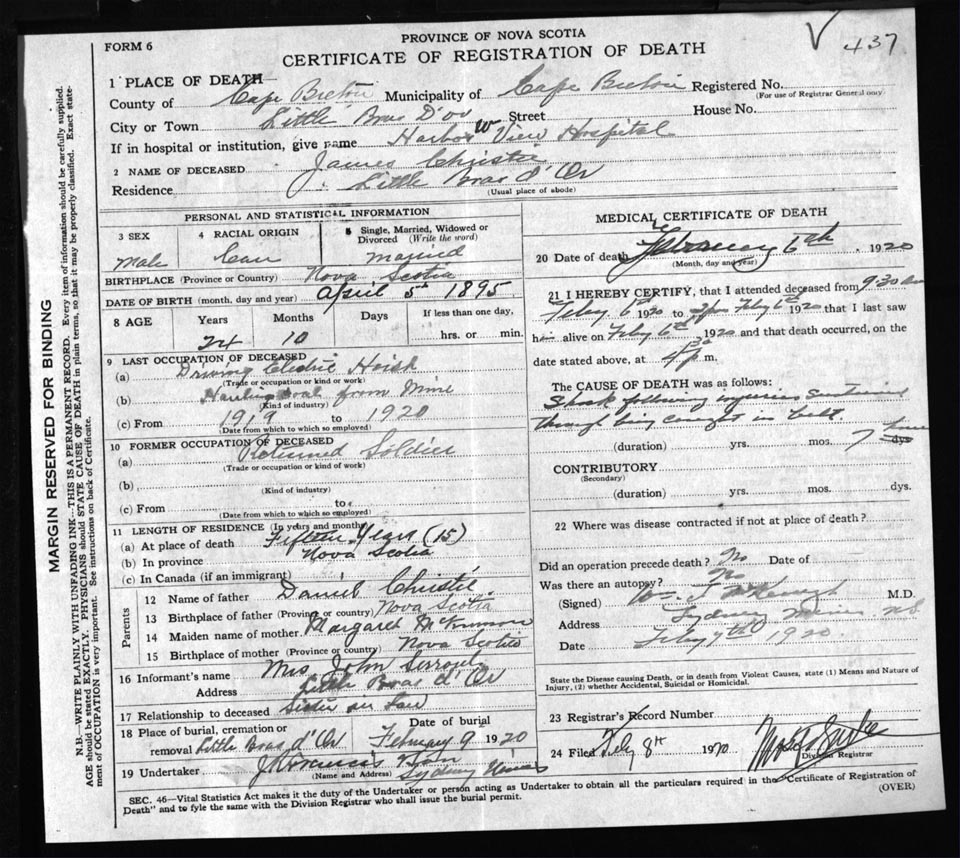 FORM 6
PROVINCE OF NOVA SCOTIA
CERTIFICATE OF REGISTRATION OF DEATH
437
1 PLACE OF DEATH—
County of Cape Breton Municipality of Cape Breton Registered No.
(For use of Registrar General only)
City or Town Little Bras D'or Street House No.
If in hospital or institution, give name Harbor View Hospital
2 NAME OF DECEASED James Christie
Residence Little Bras d'Or
(Usual place of abode)
PERSONAL AND STATISTICAL INFORMATION
3 SEX 4 RACIAL ORIGIN 5 Single, Married, Widowed or Divorced (Write the word)
Male Can married
BIRTHPLACE (Province or Country) Nova Scotia
DATE OF BIRTH (month, day and year) April 5th 1895
8 AGE Years Months Days If less than one day,
24 10 hrs. or min.
9 LAST OCCUPATION OF DECEASED
(a) Driving Electric Hoist
(Trade or occupation or kind or work)
(b) Hauling Coal from Mine
(Kind of industry)
(c) From 1919 to 1920
(Date from which to which so employed)
10 FORMER OCCUPATION OF DECEASED
(a) Returned Soldier
(Trade or occupation or kind of work)
(b)
(Kind of industry)
(c) From to
(Date from which to which so employed)
11 LENGTH OF RESIDENCE (In years and months)
(a) At place of death Fifteen Years (15)
(b) In province Nova Scotia
(c) In Canada (if an immigrant)
Parents
12 Name of father Daniel Christie
13 Birthplace of father (Province or country) Nova Scotia
14 Maiden name of mother Margaret
15 Birthplace of mother (Province or country) Nova Scotia
16 Informant's name Mrs John
Address Little Bras d'Or
17 Relationship to deceased Sister in Law
18 Place of burial, cremation or removal Little Bras d'Or Date of burial February 9 1920
19 Undertaker Sydney Mines
(Name and Address)
MEDICAL CERTIFICATE OF DEATH
20 Date of death February 6th, 1920
(Month, day and year)
21 I HEREBY CERTIFY, that I attended deceased from 9:30 am
Feby 6th 1920 to Feby 6th 1920 that I last saw
him alive on Feby 6th 1920 and that death occurred, on the
date stated above, at 4 30 p.m.
The CAUSE OF DEATH was as follows:
Shock following injuries sustained
through being caught in belt.
(duration) yrs. mos. 7 hours dys
CONTRIBUTORY
(Secondary)
(duration) yrs. mos. dys.
22 Where was disease contracted if not at place of death?
Did an operation precede death? No Date of
Was there an autopsy? No
(Signed) M.D.
Address Sydney Mines N.S.
Date Feby 7th 1920
State the Disease causing Death, or in death from Violent Causes, state (1) Means and Nature of
Injury, (2) whether Accidental, Suicidal or Homicidal.
23 Registrar's Record Number
24 Filed Feby 8th 1920
Division Registrar
SEC. 46—Vital Statistics Act makes it the duty of the Undertaker or person acting as Undertaker to obtain all the particulars required in the Certificate of Registration of
Death" and to fyle the same with the Division Registrar who shall issue the burial permit.
(OVER)
MARGIN RESERVED FOR BINDING
N.B.—WRITE PLAINLY WITH UNFADING INK—THIS IS A PERMANENT RECORD. Every item of information should be carefully supplied.
AGE should be stated EXACTLY. PHYSICIANS should STATE CAUSE OF DEATH in plain terms, so that it may be properly classified. Exact statement
of OCCUPATION is very important. See instructions on back of Certificate.